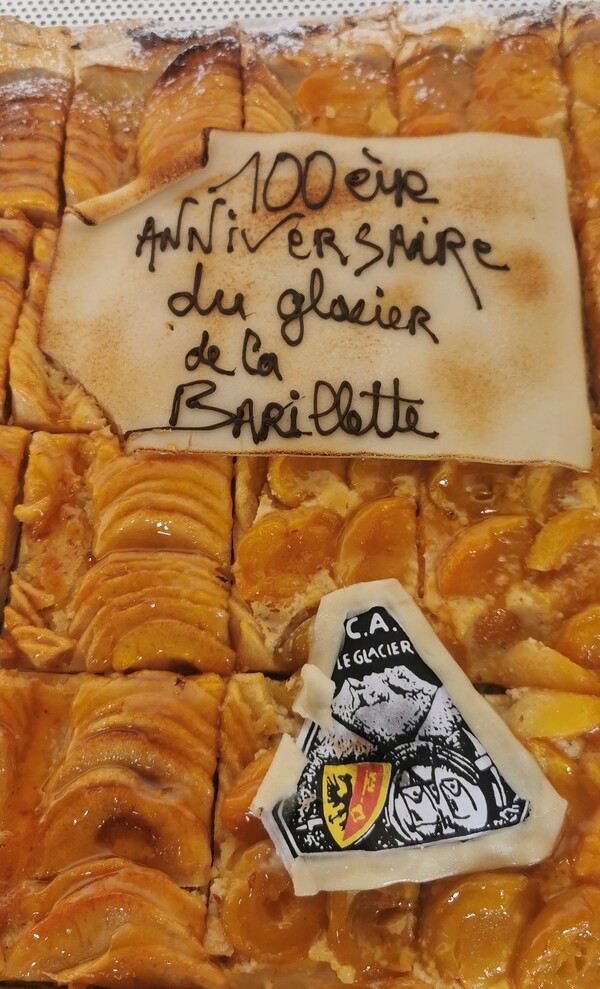 100 ème
ANNiVERSAiRE
du glacier
de la
BARillette
C.A.
LE GLACIER